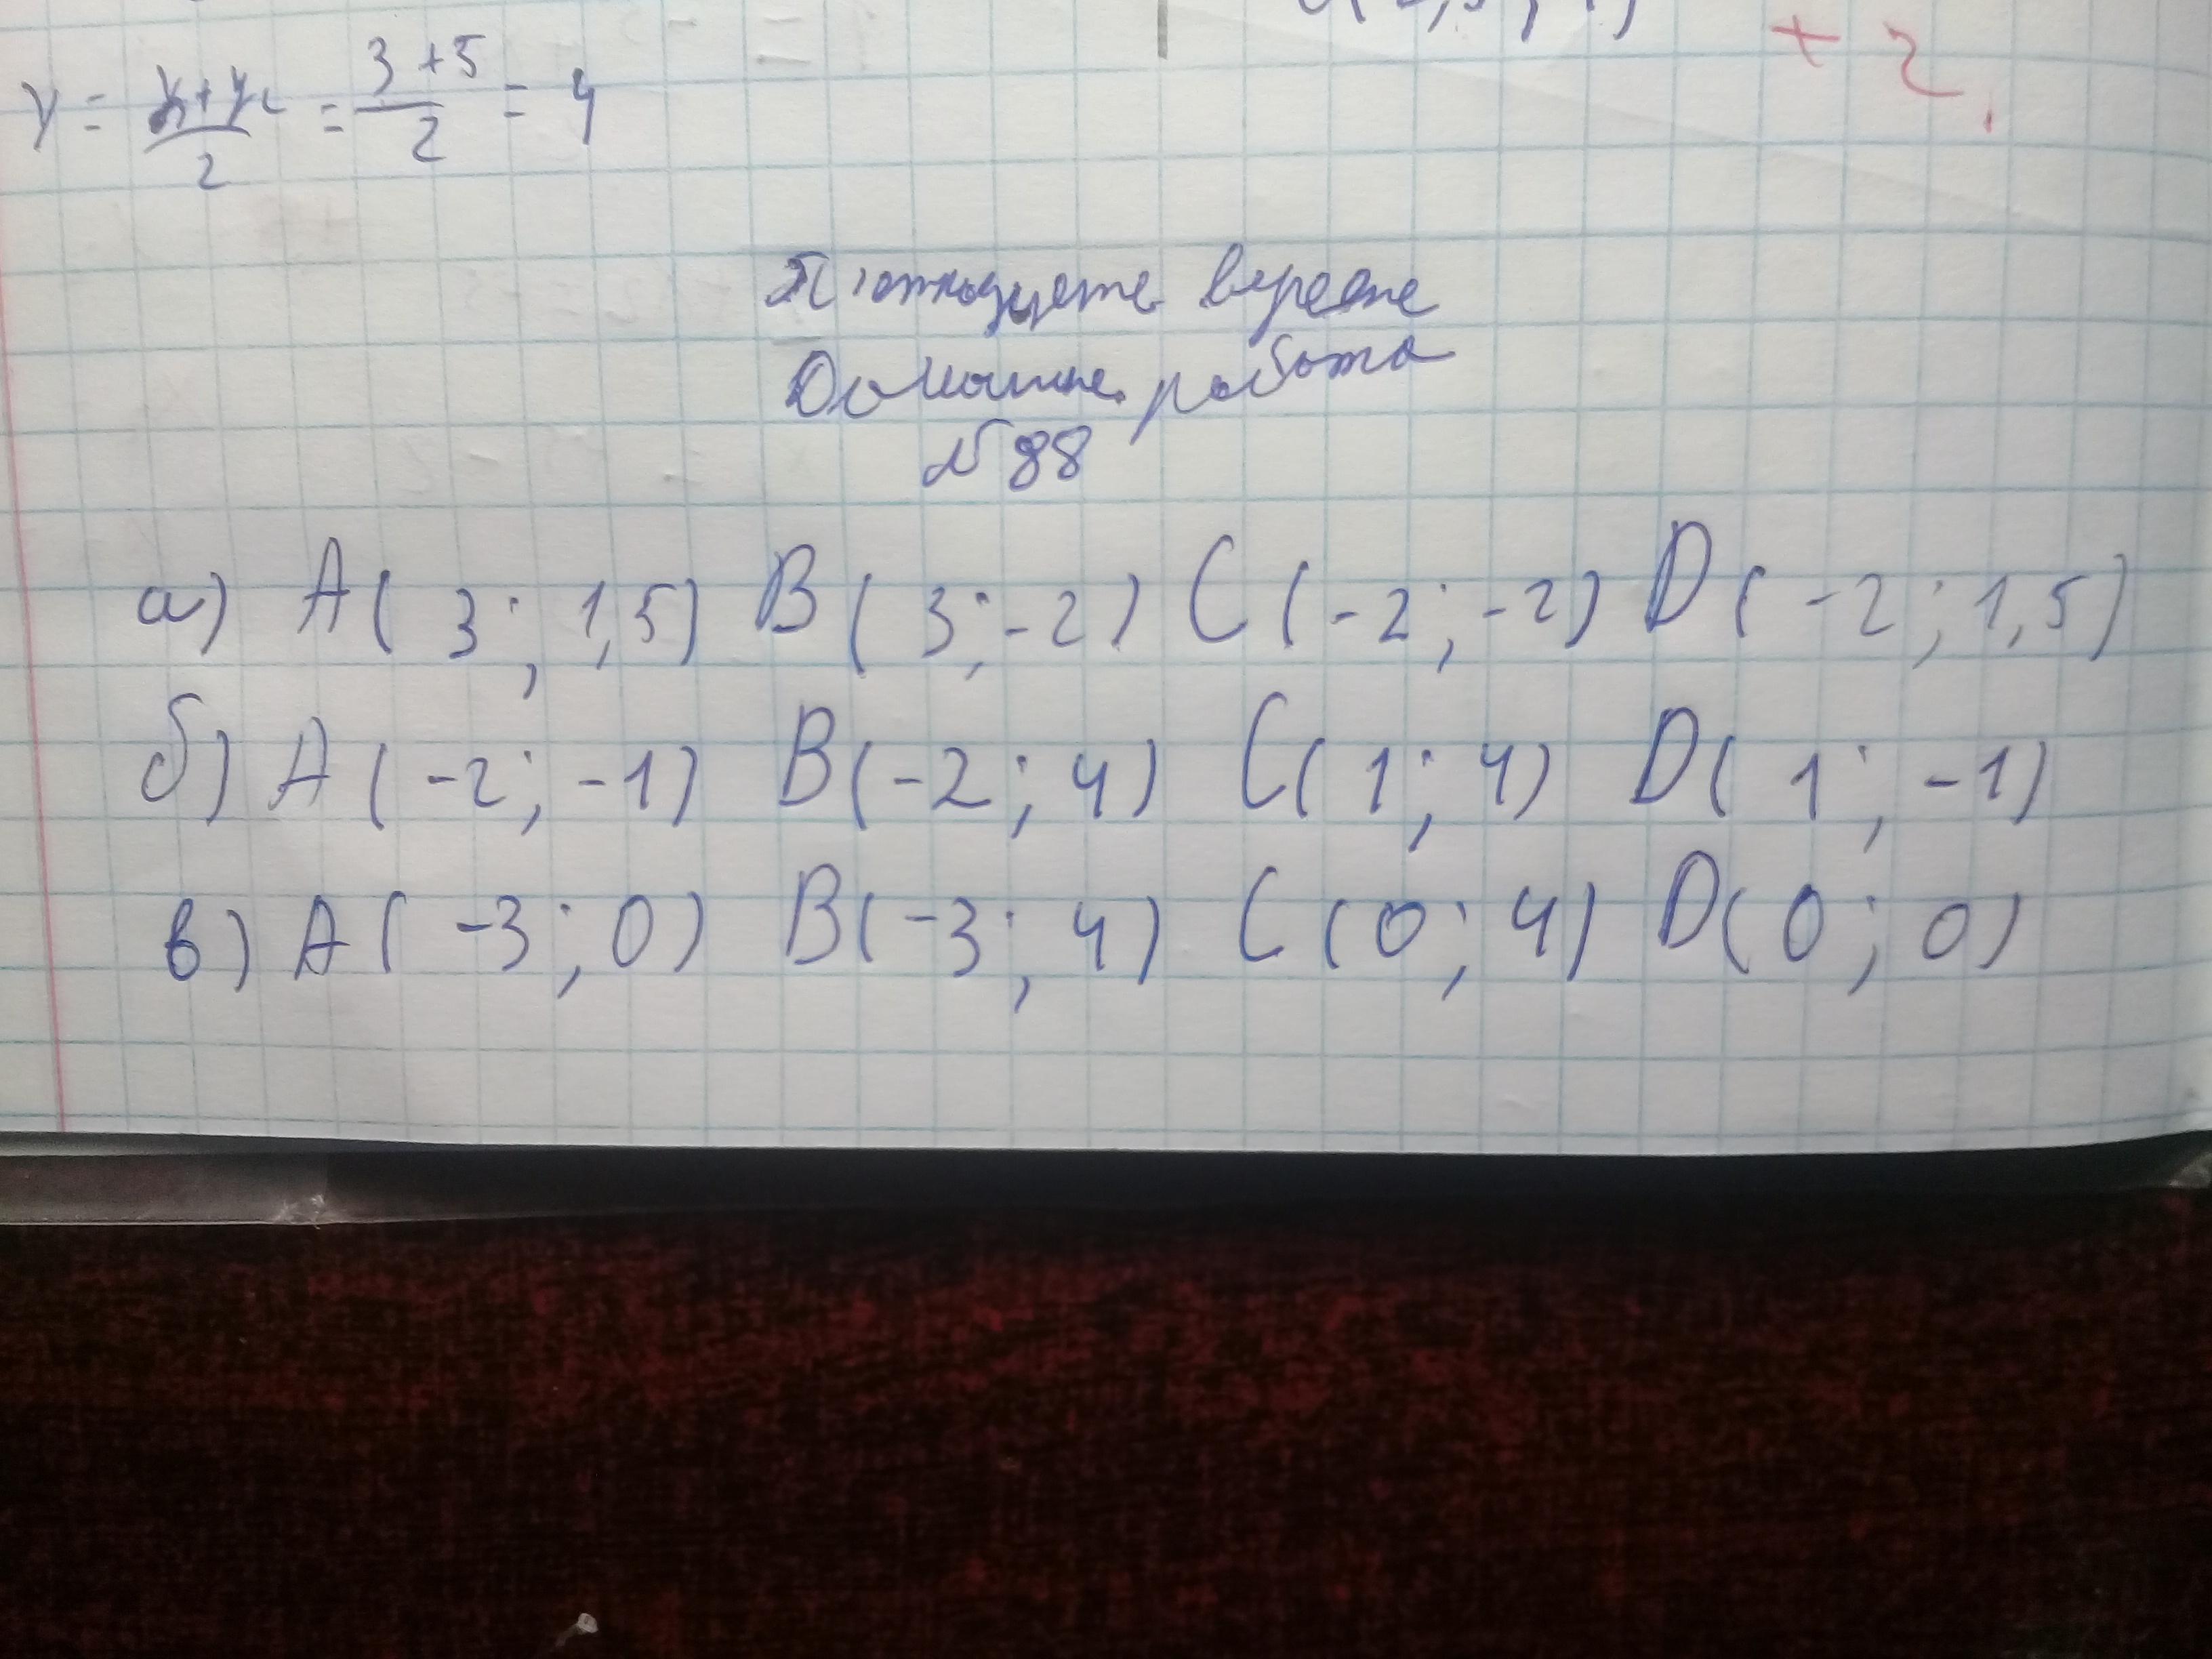 + 2
y = y₁+y₂/2 = 3+5/2 = 4
П'ятнадцяте вересня
Домашня робота
№88
а) A( 3 ; 1,5) B( 3 ; -2) C( -2 ; -2) D( -2 ; 1,5)
б) A( -2 ; -1) B( -2 ; 4) C( 1 ; 4) D( 1 ; -1)
в) A( -3 ; 0) B( -3 ; 4) C( 0 ; 4) D( 0 ; 0)